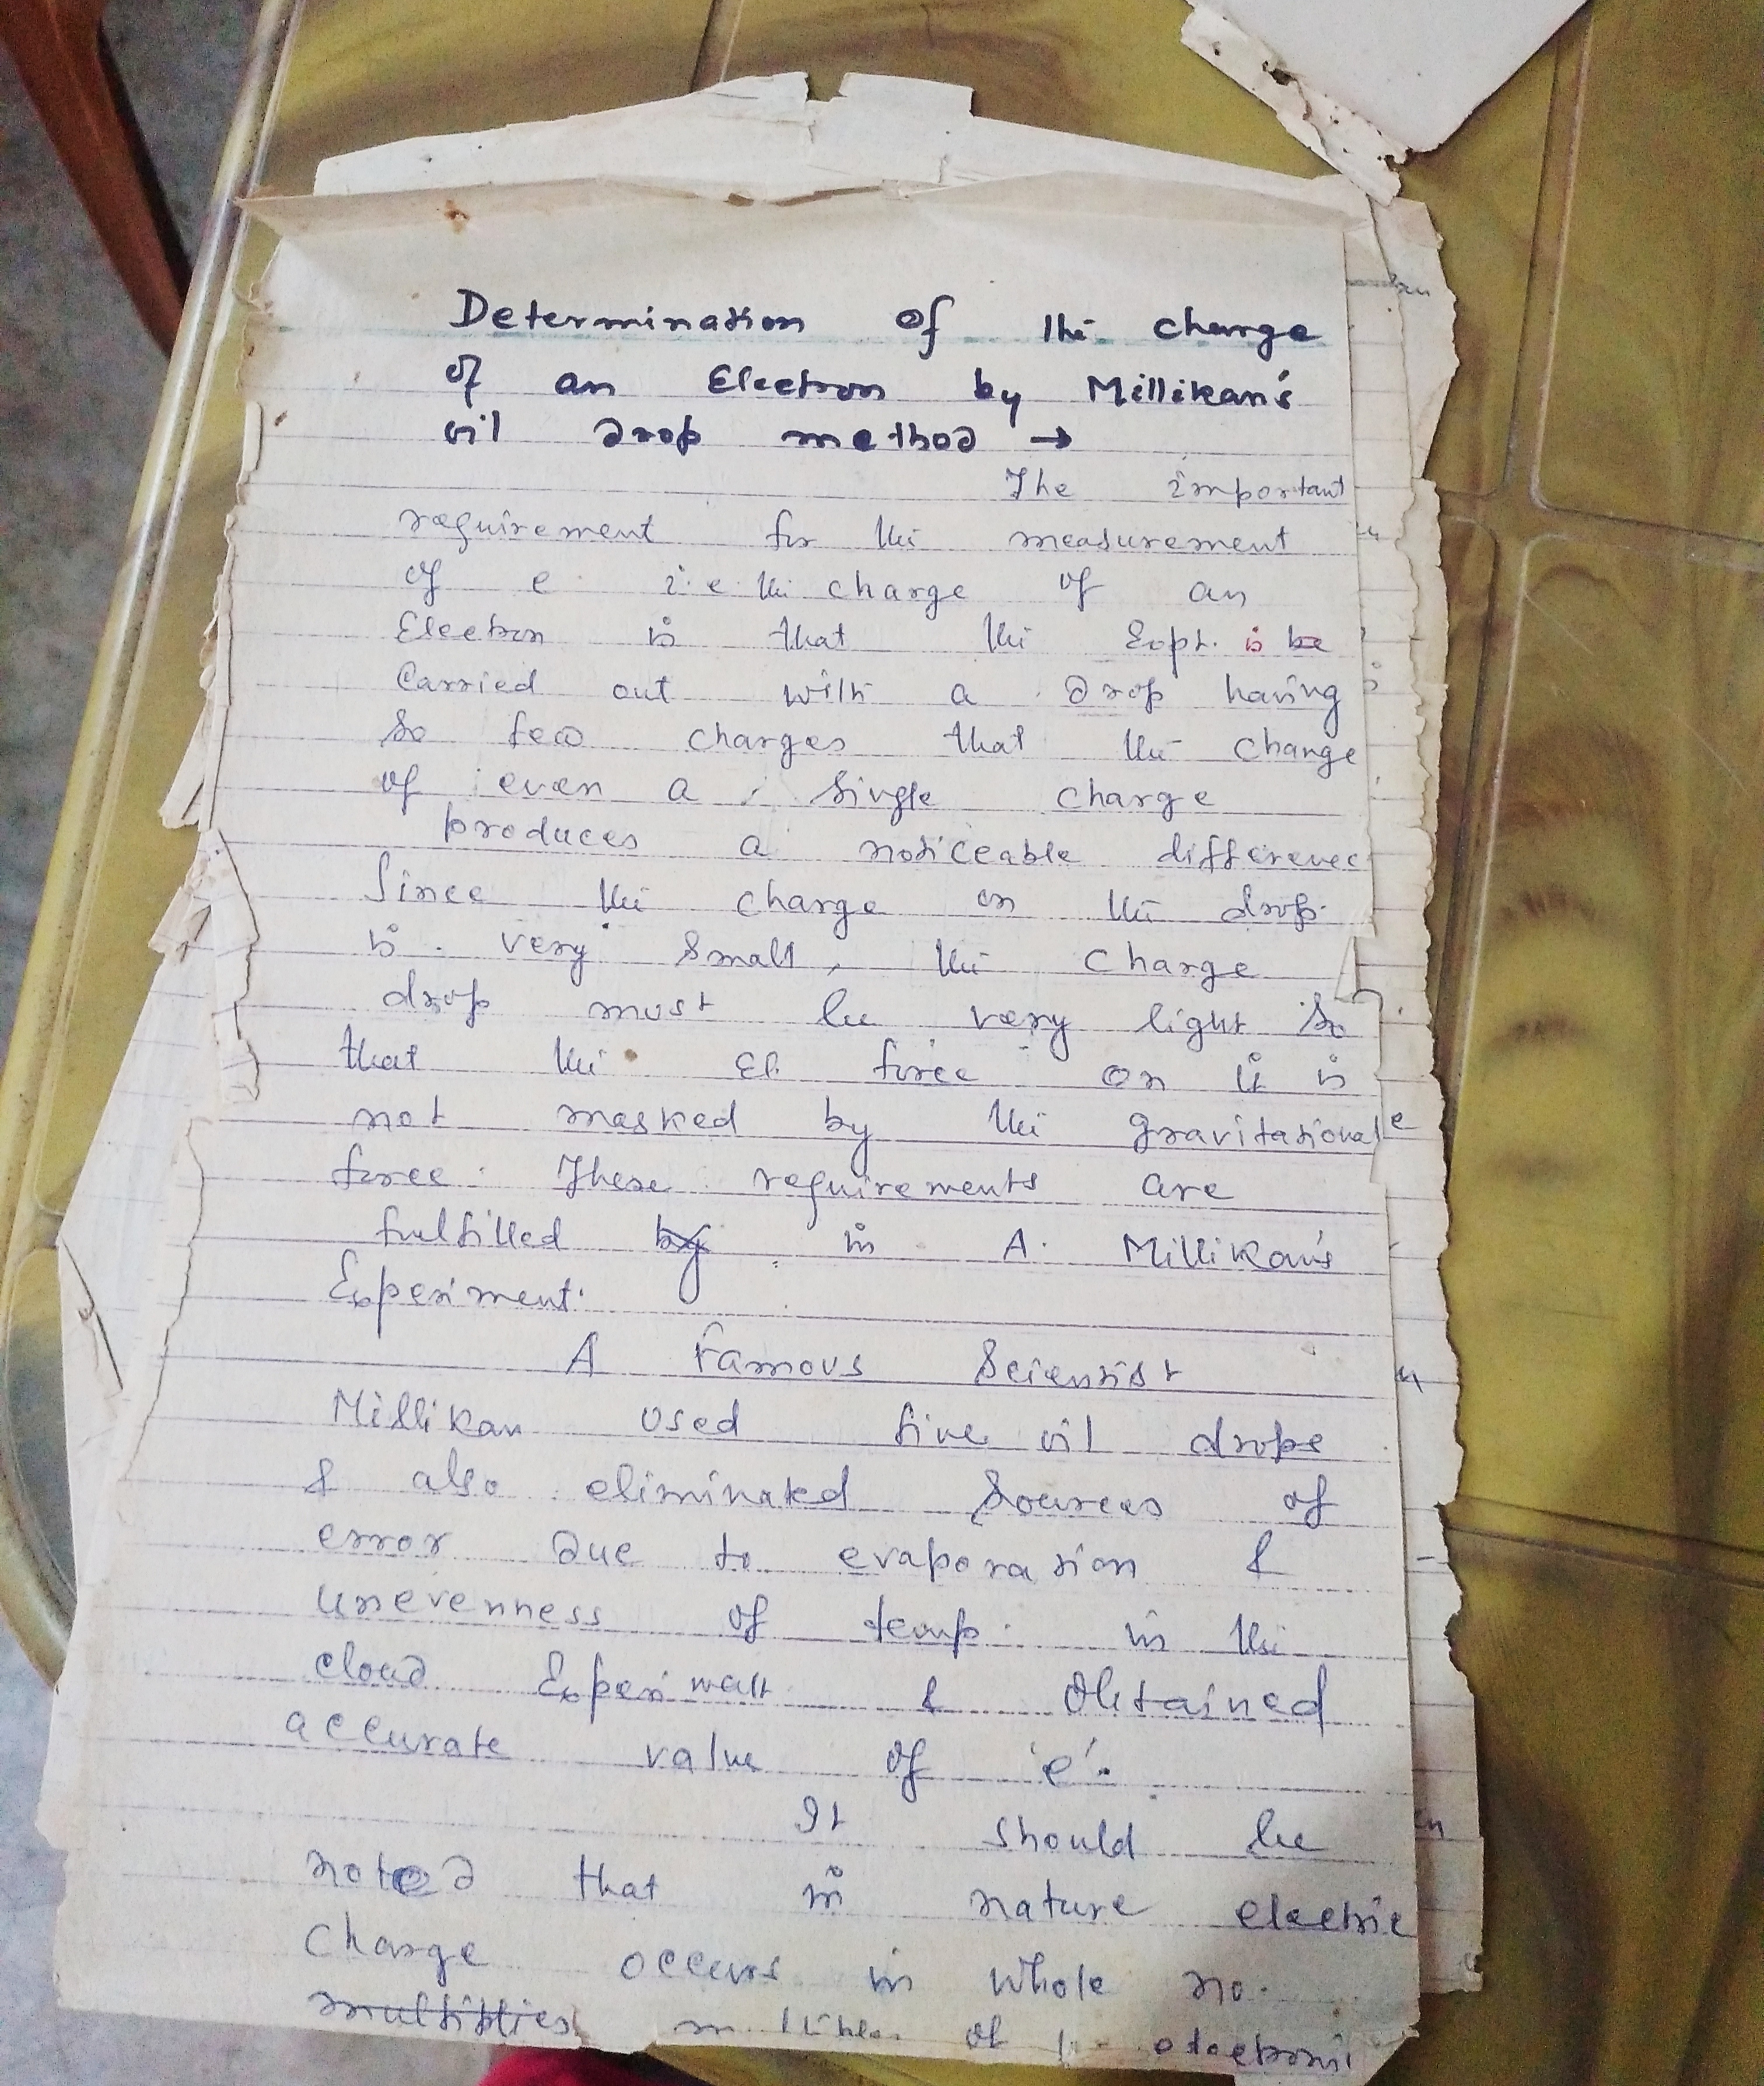 Determination Of the charge
of an Electron by Millikan's
oil drop method →
The important
requirement for the measurement
of e i.e the charge of an
Electron is that the Expt. is be
Carried out with a drop having
so few charges that the change
of even a single charge
produces a noticeable difference
Since the charge on the drop
is very small, the charge
drop must be very light so
that the El. force on it is
not masked by the gravitational
force. These requirements are
fulfilled by in A. Millikan's
Experiment.
A Famous Scientist
Millikan used fine oil drops
& also eliminated Sources of
error due to evaporation &
unevenness of temp. in the
cloud Experiment & Obtained
accurate value of 'e'.
It should be
noted that in nature electric
Charge occurs in whole no.
multiplies of